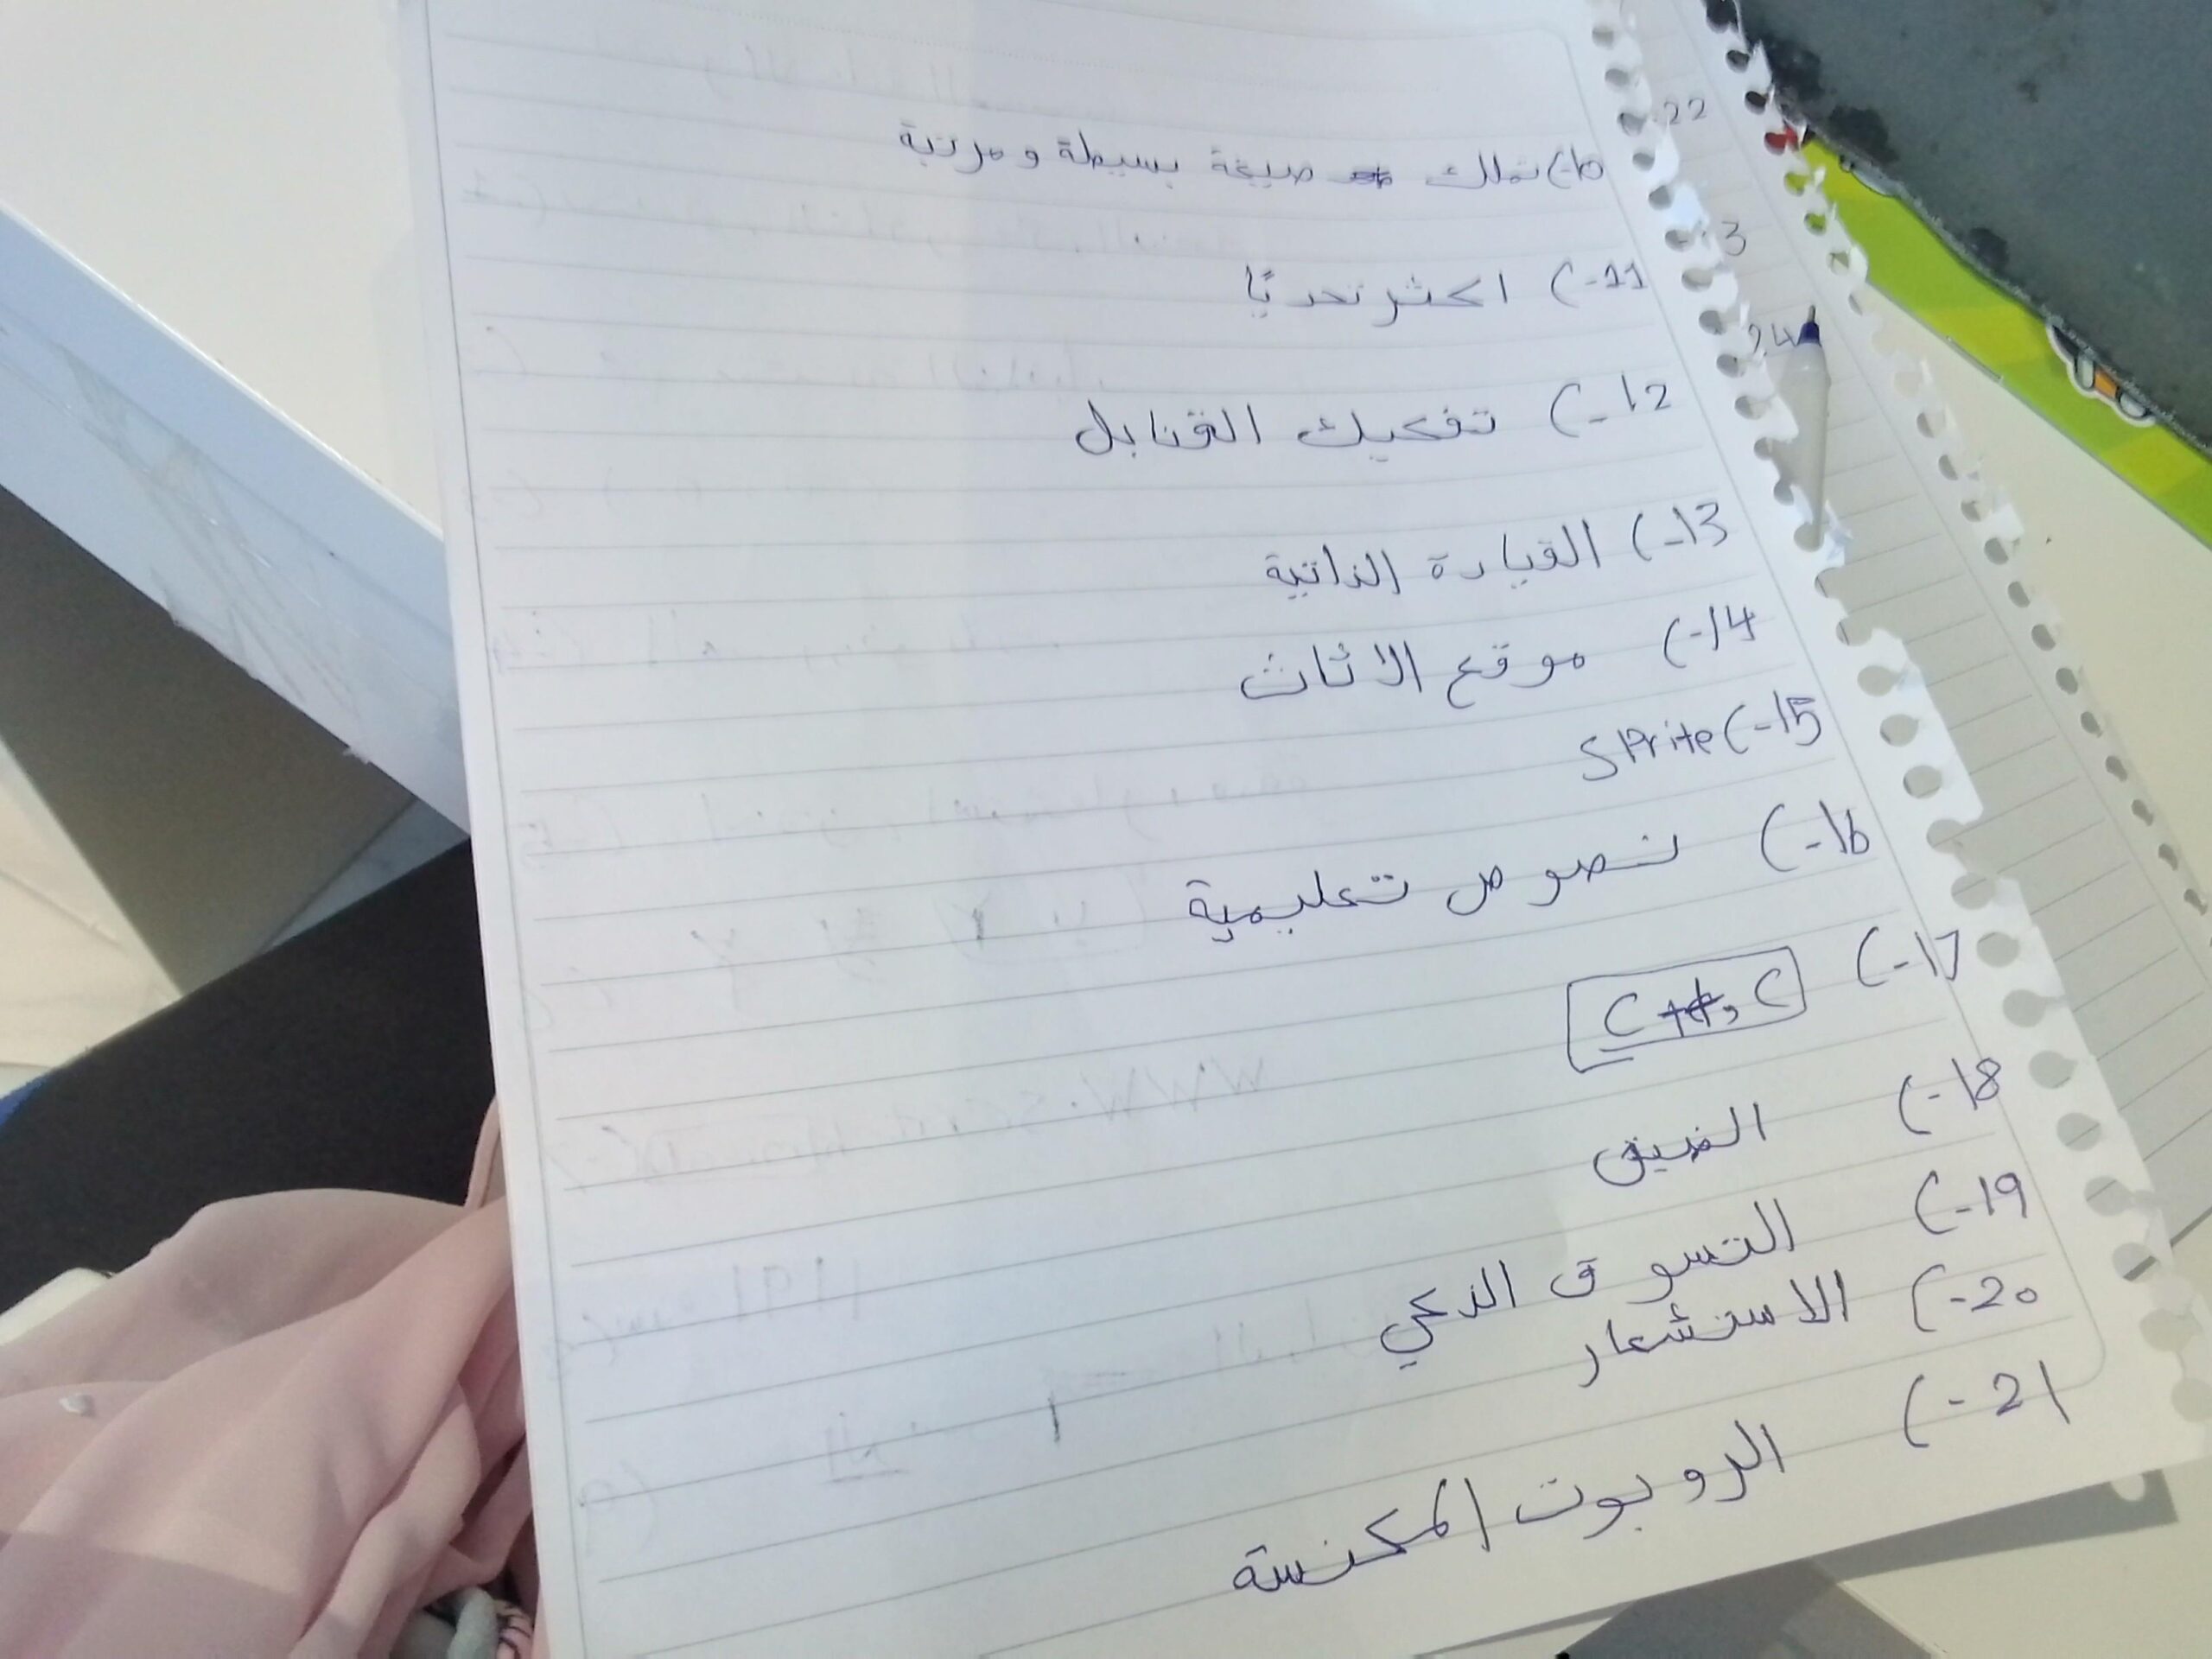 10-) تملك صيغة بسيطة ومرتبة
11-) اكثر تحديًا
12-) تفكيك القنابل
13-) القيادة الذاتية
14-) موقع الاثاث
15-) Sprite
16-) نصوص تعليمية
17-) C++, C
18-) الضيق
19-) التسوق الذكي
20-) الاستشعار
21-) الروبوت المكنسة
22
3
24